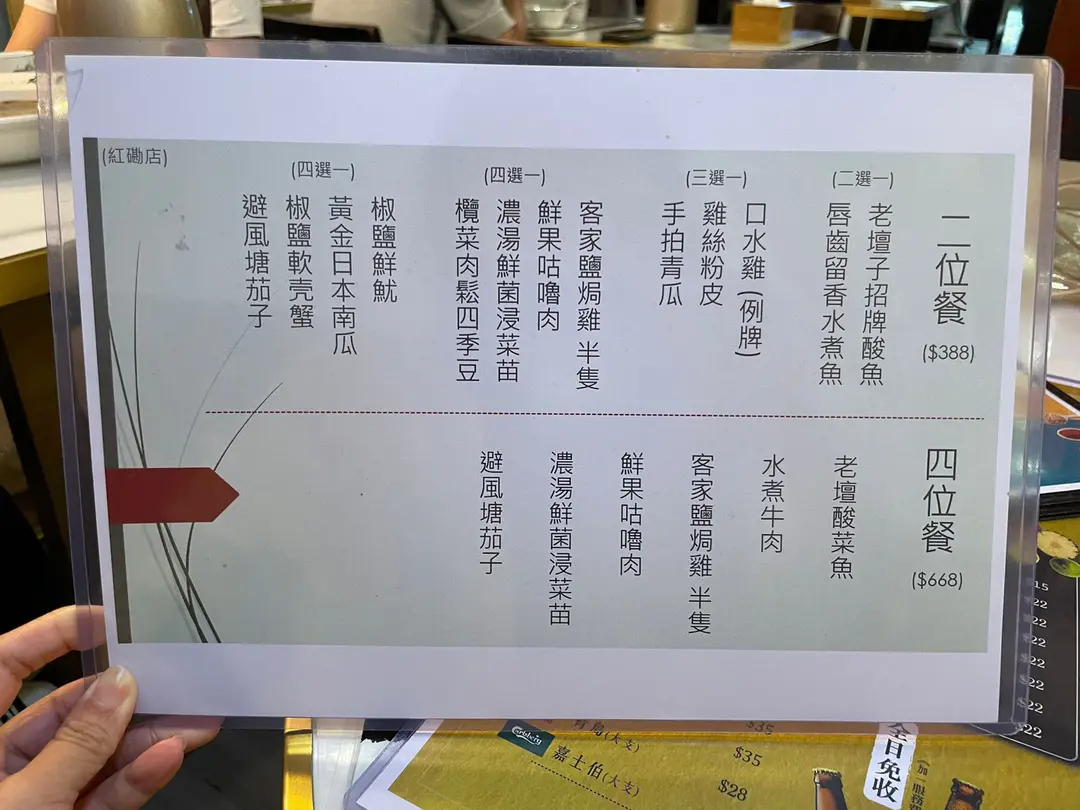 (紅磡店)
二位餐
($388)
(二選一)
老壇子招牌酸魚
唇齒留香水煮魚
(三選一)
口水雞 (例牌)
雞絲粉皮
手拍青瓜
(四選一)
客家鹽焗雞 半隻
鮮果咕嚕肉
濃湯鮮菌浸菜苗
欖菜肉鬆四季豆
(四選一)
椒鹽鮮魷
黃金日本南瓜
椒鹽軟壳蟹
避風塘茄子
四位餐
($668)
老壇酸菜魚
水煮牛肉
客家鹽焗雞 半隻
鮮果咕嚕肉
濃湯鮮菌浸菜苗
避風塘茄子
$22
$22
$22
$22
$22
$22
$22
青島(大支) $35
Carlsberg
嘉士伯(大支) $35
$28
全日免收
(加一服務